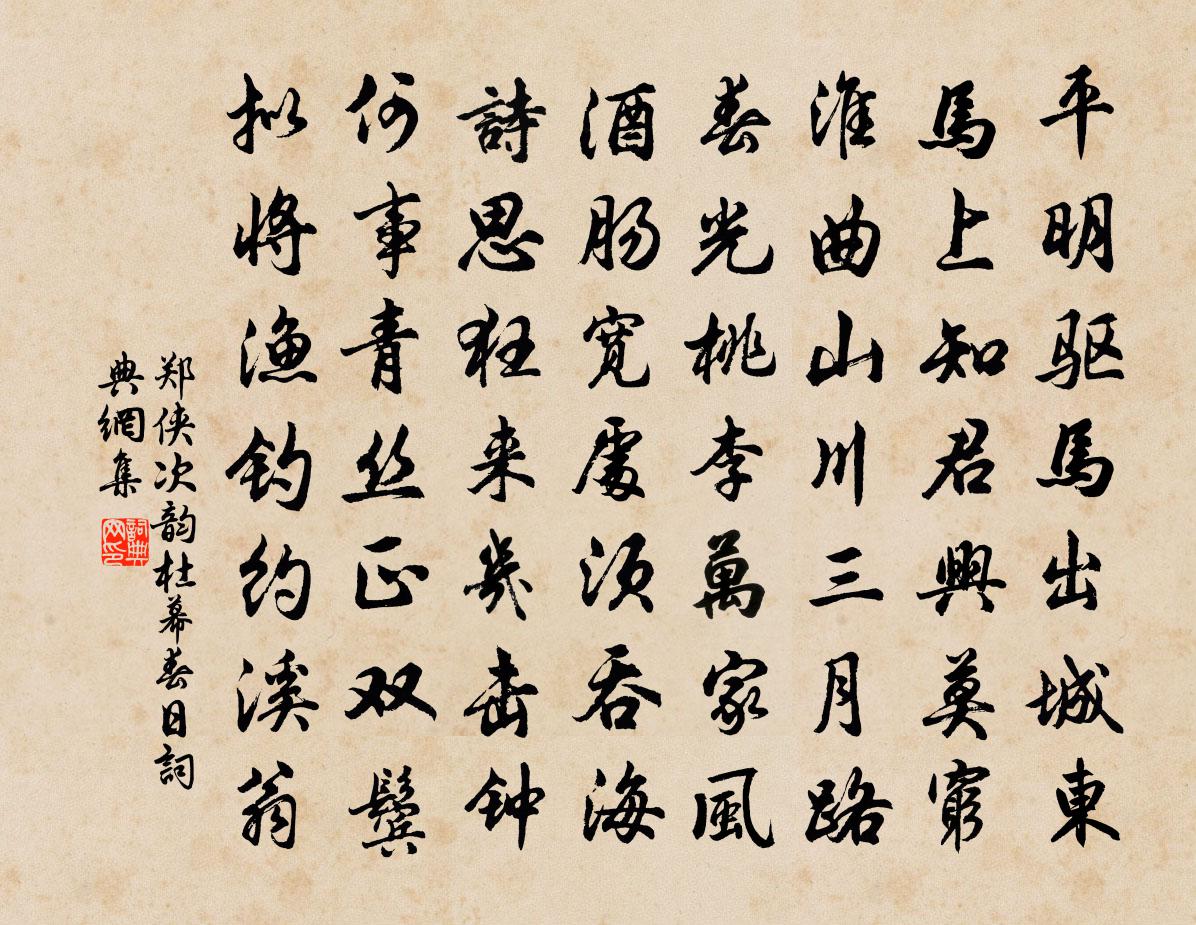 平明驱馬出城東
馬上知君興莫窮
淮曲山川三月路
春光桃李萬家風
酒肠宽處须吞海
詩思狂来幾击钟
何事青丝正双鬓
拟将渔钓约溪翁
郑侠次韵杜幕春日詞
典網集
詞典
网印